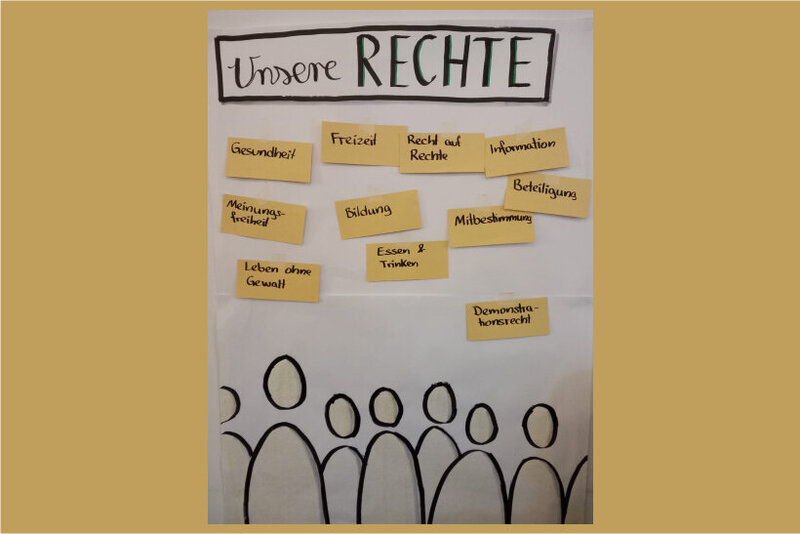 Unsere RECHTE
Gesundheit
Freizeit
Recht auf
Rechte
Information
Meinungs-
freiheit
Bildung
Mitbestimmung
Beteiligung
Leben ohne
Gewalt
Essen &
Trinken
Demonstra-
tionsrecht